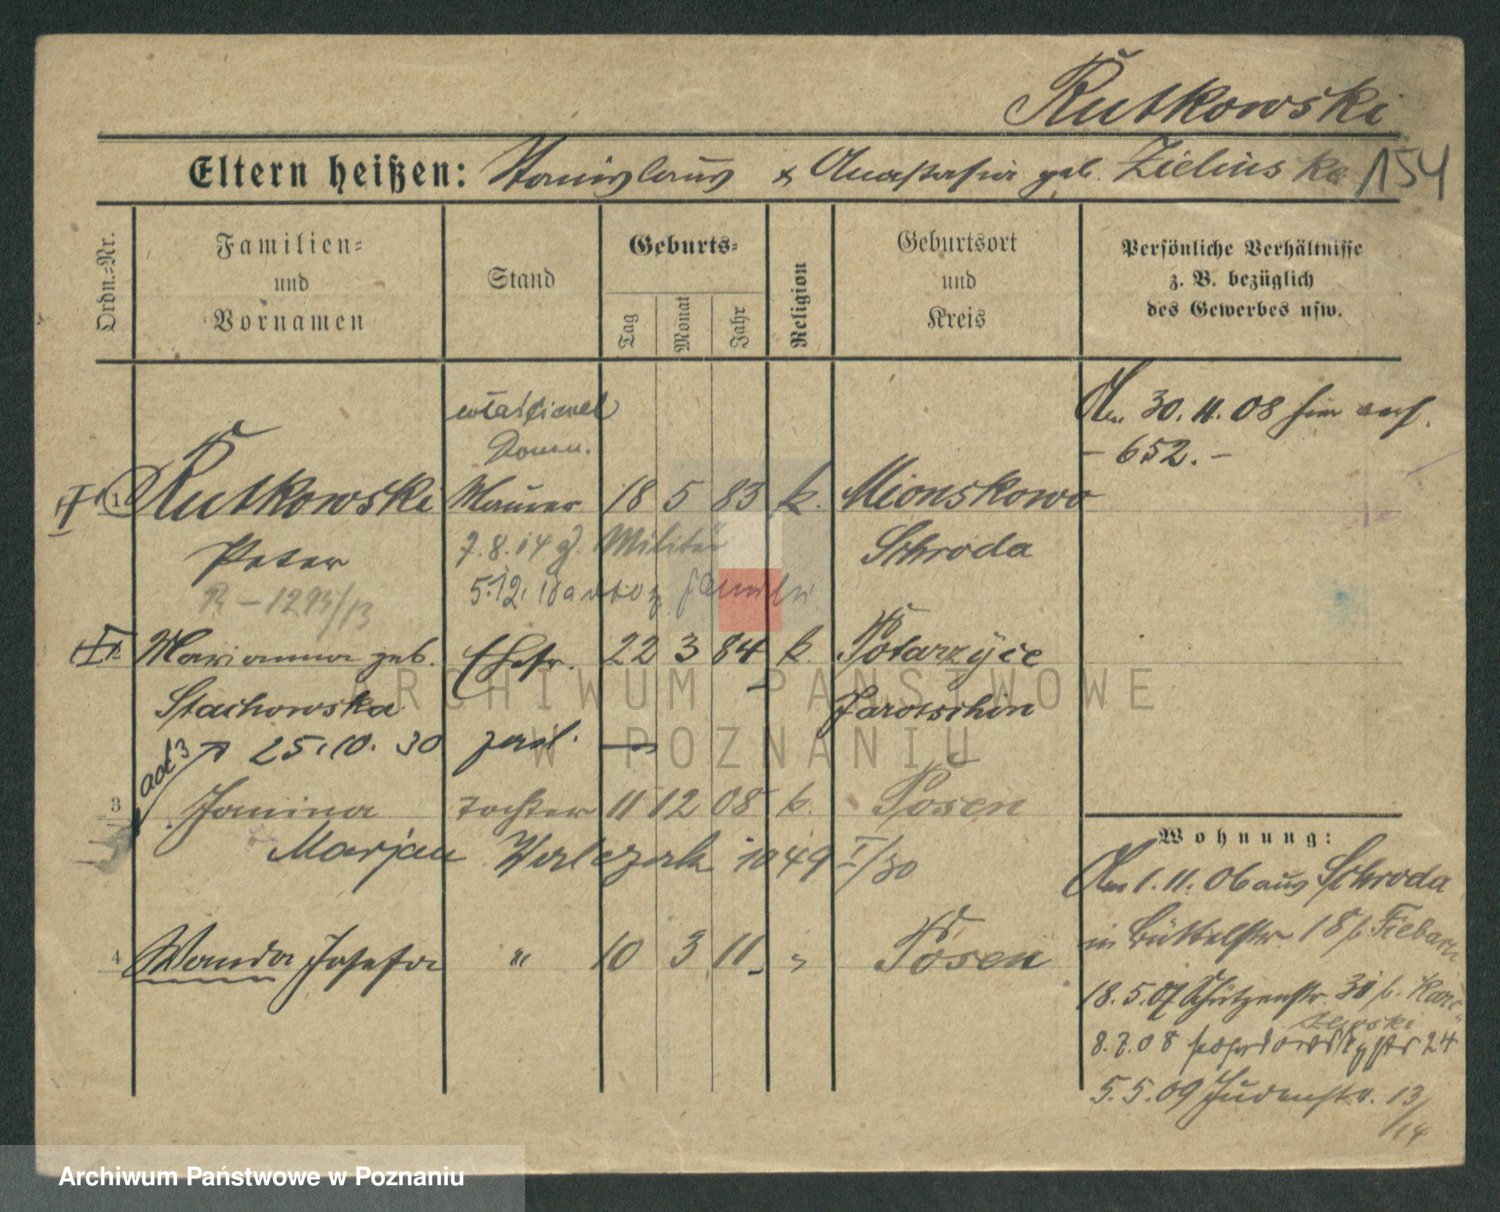 Rutkowski
Eltern heißen: Stanislaus & Anastasia geb. Zielinska 154
Ordn.-Nr.
Familien-
und
Vornamen
Stand
Geburts-
Tag
Monat
Jahr
Religion
Geburtsort
und
Kreis
Persönliche Verhältnisse
z. B. bezüglich
des Gewerbes usw.
Am 30.11.08 hier verh.
- 652. -
1 Rutkowski Maurer 18 5 83 k. Mionskowo
Peter 7.8.14 z. Militär Schroda
R - 1293/13 5.12.18
Marianna geb. Ehefr. 22 3 84 k. Potarzyce
Stachowska Jarotschin
25.10.30
ad 3
3 Janina Tochter 11 12 08 k. Posen
Marjan Walczak 1049 I/30
4 Wanda Josefa " 10 3 11 " Posen
Wohnung:
Am 1.11.06 aus Schroda
in Büttelstr. 18 b.
18.5.07 Schützenstr. 31 b.
8.7.08 24
5.5.09 Judenstr. 13/14
ARCHIWUM PAŃSTWOWE
W POZNANIU
Archiwum Państwowe w Poznaniu